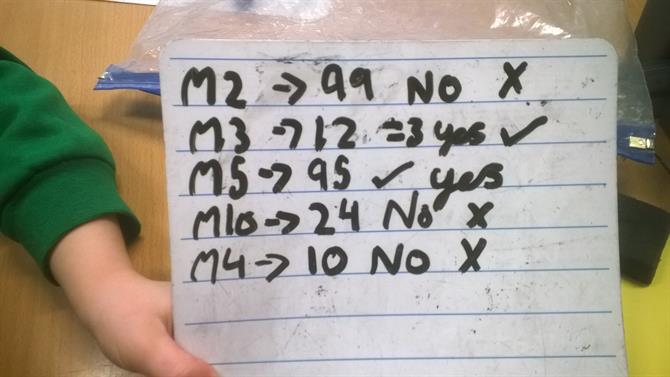 M2 → 99 No X
M3 → 12 =3 yes ✓
M5 → 95 ✓ yes
M10 → 24 No X
M4 → 10 No X